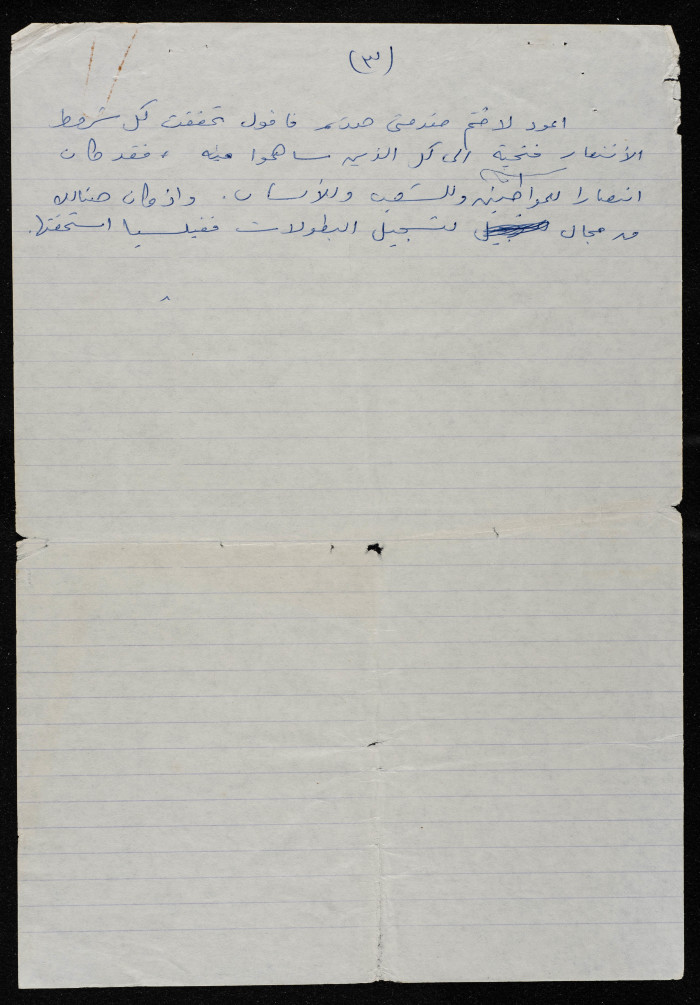 (٣)
اعود لاختم مقدمتي هذه فاقول تحققت كل شروط
الأنتصار فتحية الى كل الذين ساهموا فيه ، فقد كان
انتصارا للمواطنين وللشعب وللأنسان . واذ كان هنالك
من مجال لتسجيل البطولات ففيليسيا استحقتها.